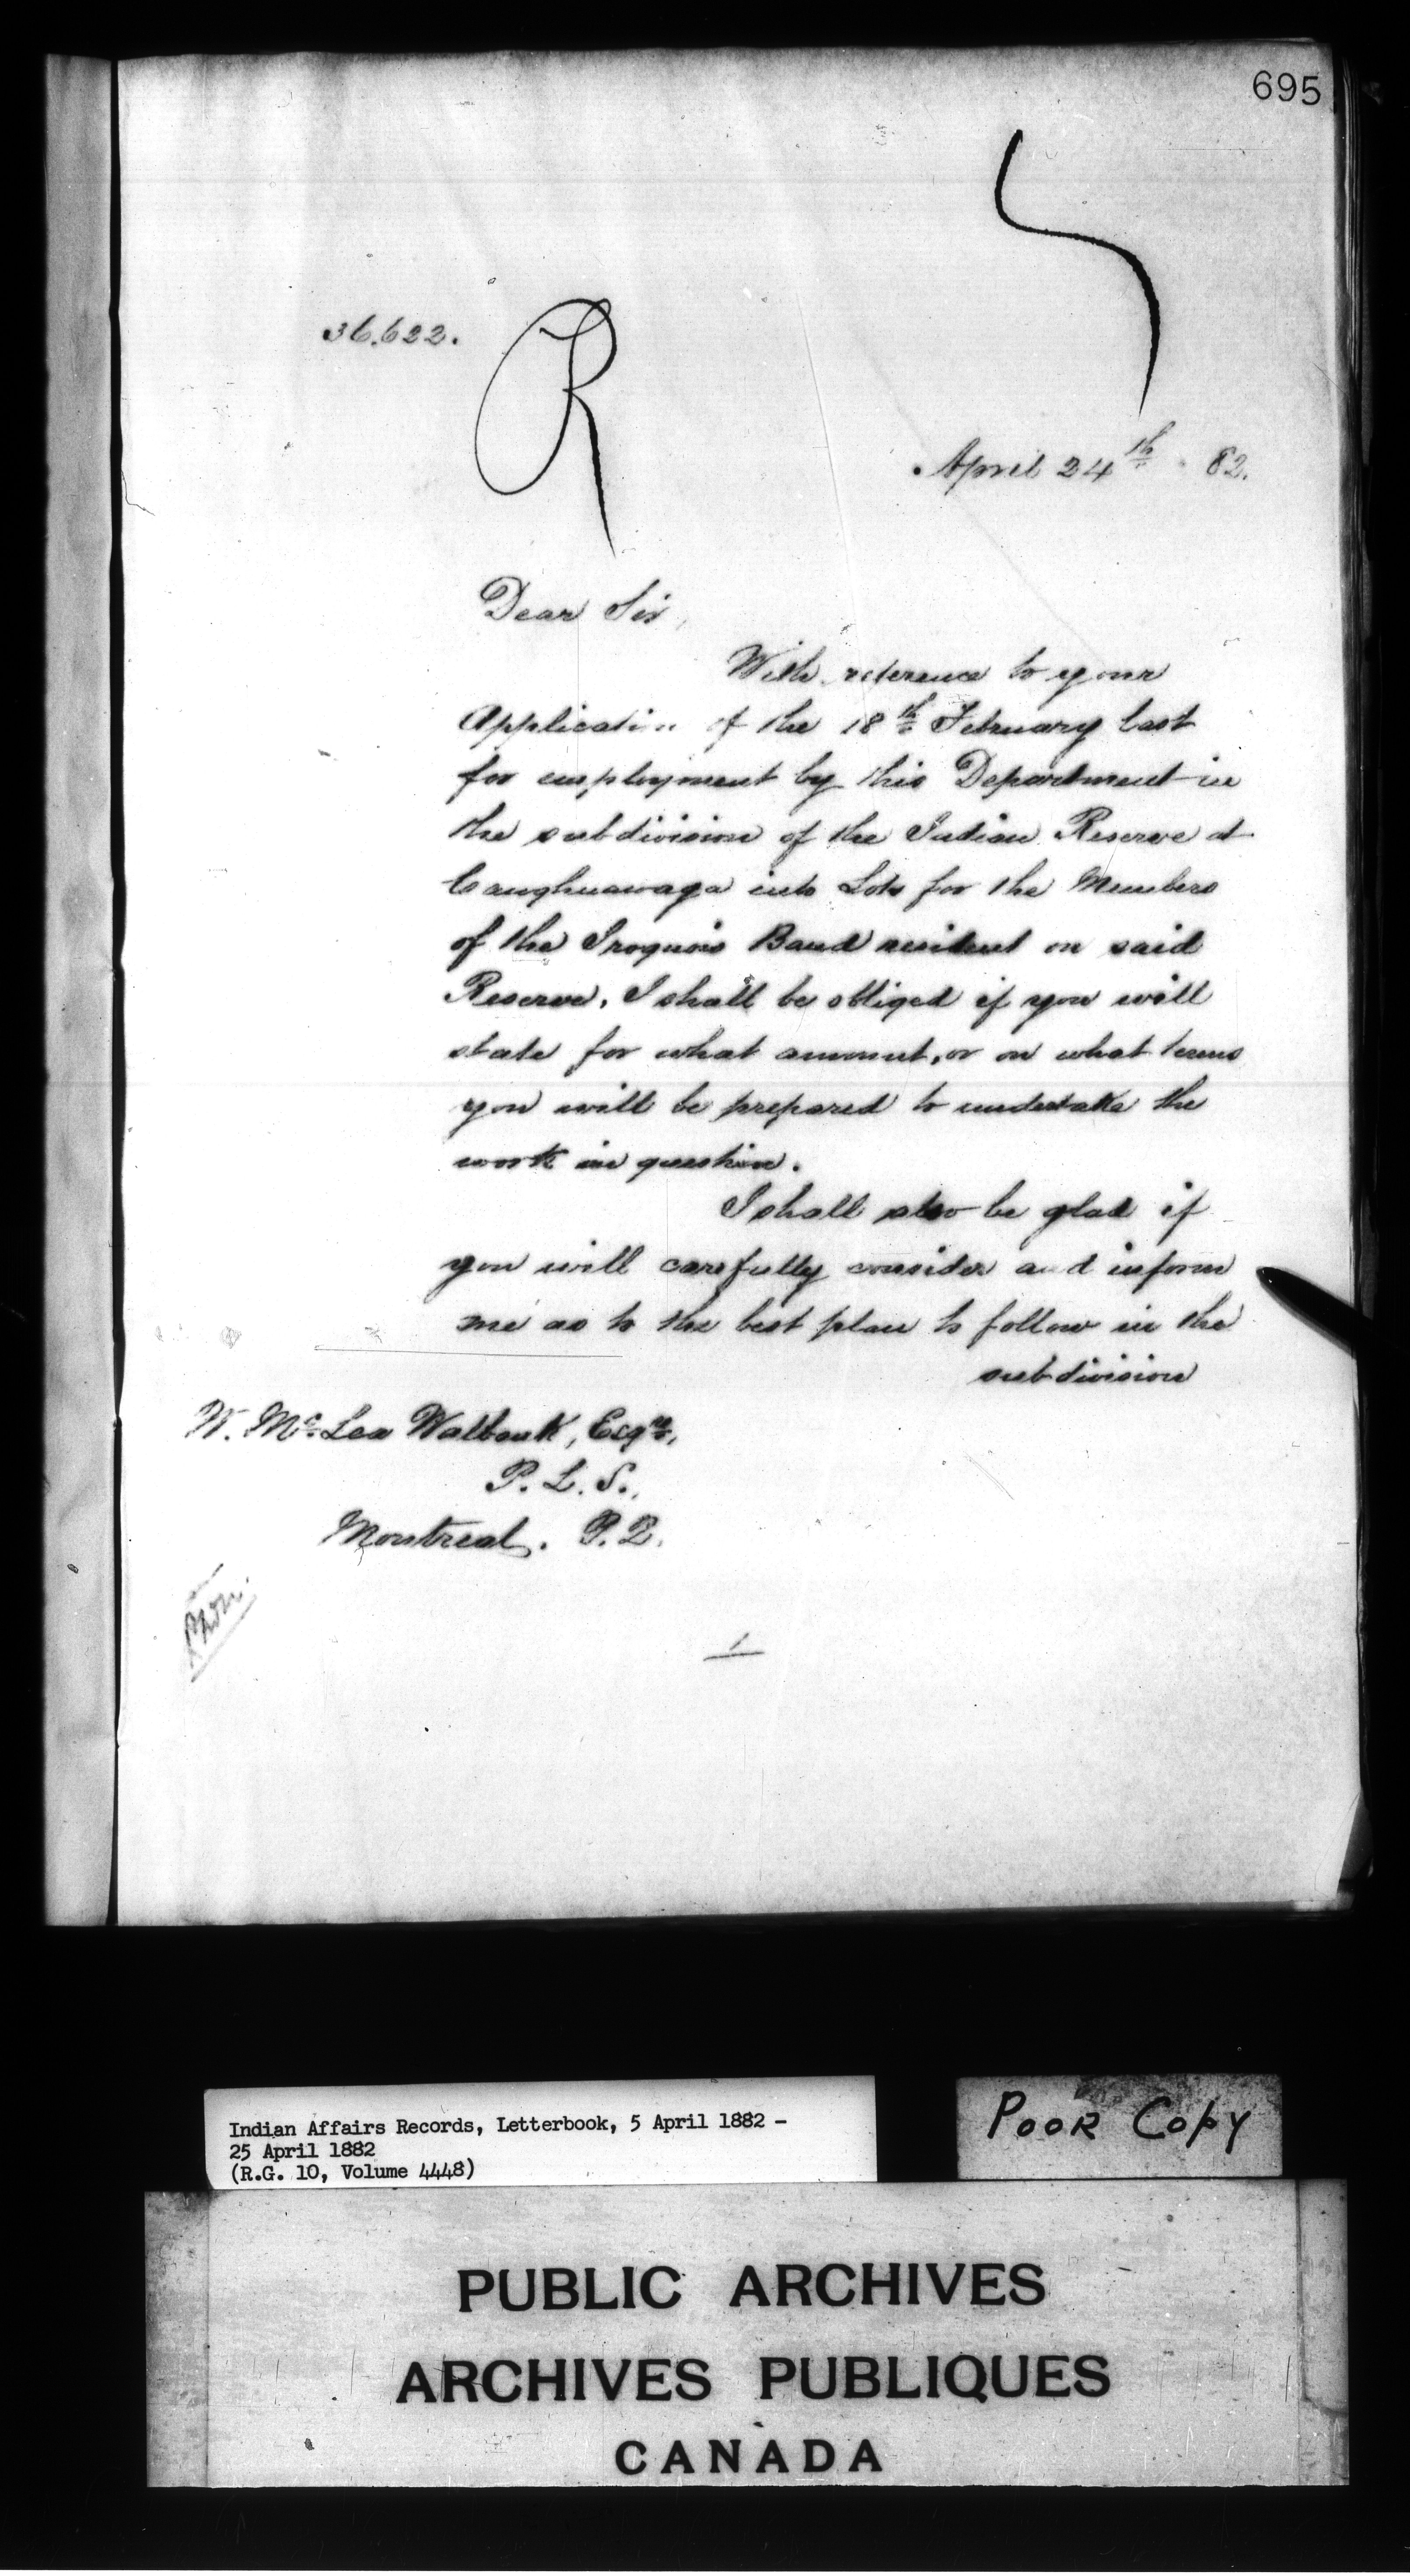 695
36.622.
R
April 24th 82.
Dear Sir,
With reference to your
Application of the 18th February last
for employment by this Department in
the subdivision of the Indian Reserve at
Caughnawaga into Lots for the Members
of the Iroquois Band resident on said
Reserve, I shall be obliged if you will
state for what amount, or on what terms
you will be prepared to undertake the
work in question.
I shall also be glad if
you will carefully consider and inform
me as to the best plan to follow in the
subdivision
W. McLea Walbank, Esqre,
P. L. S.,
Montreal. P.Q.
Indian Affairs Records, Letterbook, 5 April 1882 -
25 April 1882
(R.G. 10, Volume 4448)
POOR COPY
PUBLIC ARCHIVES
ARCHIVES PUBLIQUES
CANADA